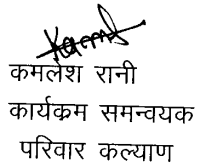 कमलेश रानी
कार्यक्रम समन्वयक
परिवार कल्याण